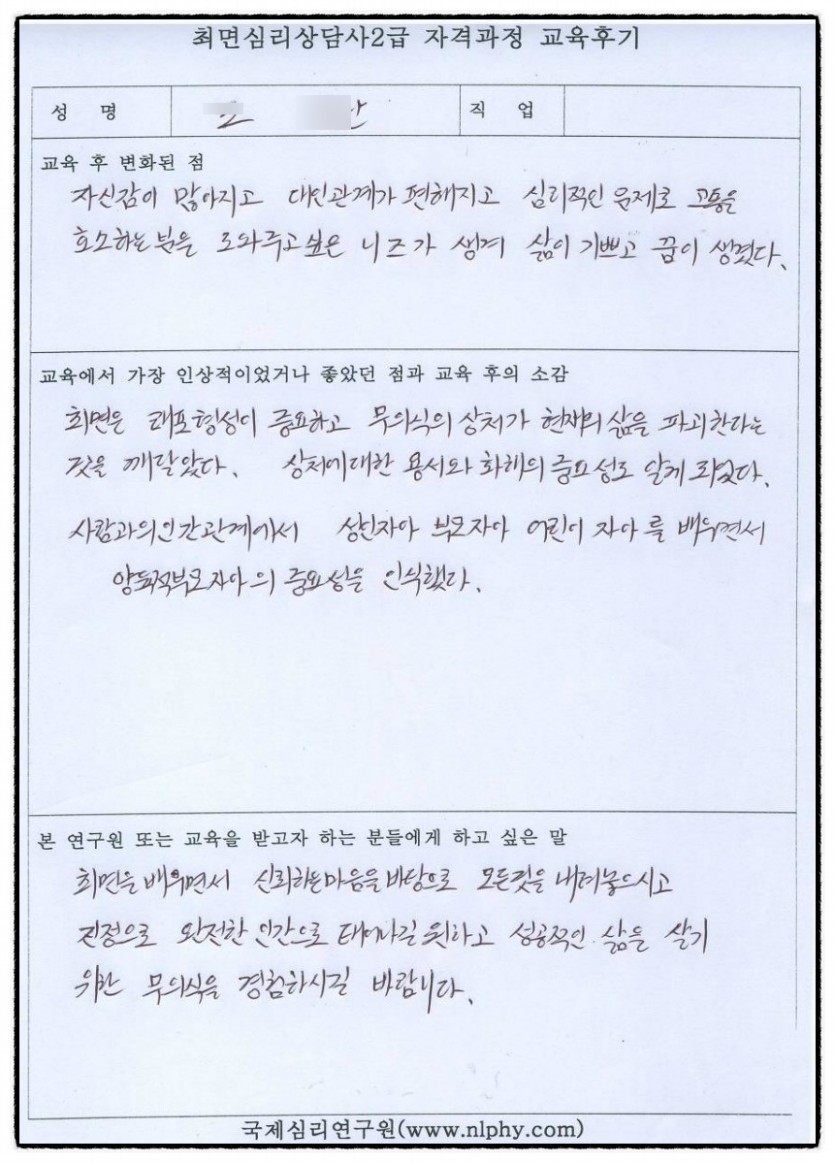 최면심리상담사2급 자격과정 교육후기
성 명
직 업
교육 후 변화된 점
자신감이 많아지고 대인관계가 편해지고 심리적인 문제로 고통을
호소하는 분을 도와주고 싶은 니즈가 생겨 삶이 기쁘고 꿈이 생겼다.
교육에서 가장 인상적이었거나 좋았던 점과 교육 후의 소감
최면은 래포형성이 중요하고 무의식의 상처가 현재의 삶을 파괴한다는
것을 깨달았다. 상처에 대한 용서와 화해의 중요성도 알게 되었다.
사람과의 인간관계에서 성인자아 부모자아 어린이 자아를 배우면서
양육적부모자아의 중요성을 인식했다.
본 연구원 또는 교육을 받고자 하는 분들에게 하고 싶은 말
최면을 배우면서 신뢰하는마음을 바탕으로 모든것을 내려놓으시고
진정으로 완전한 인간으로 태어나길 원하고 성공적인 삶을 살기
위한 무의식을 경험하시길 바랍니다.
국제심리연구원(www.nlphy.com)